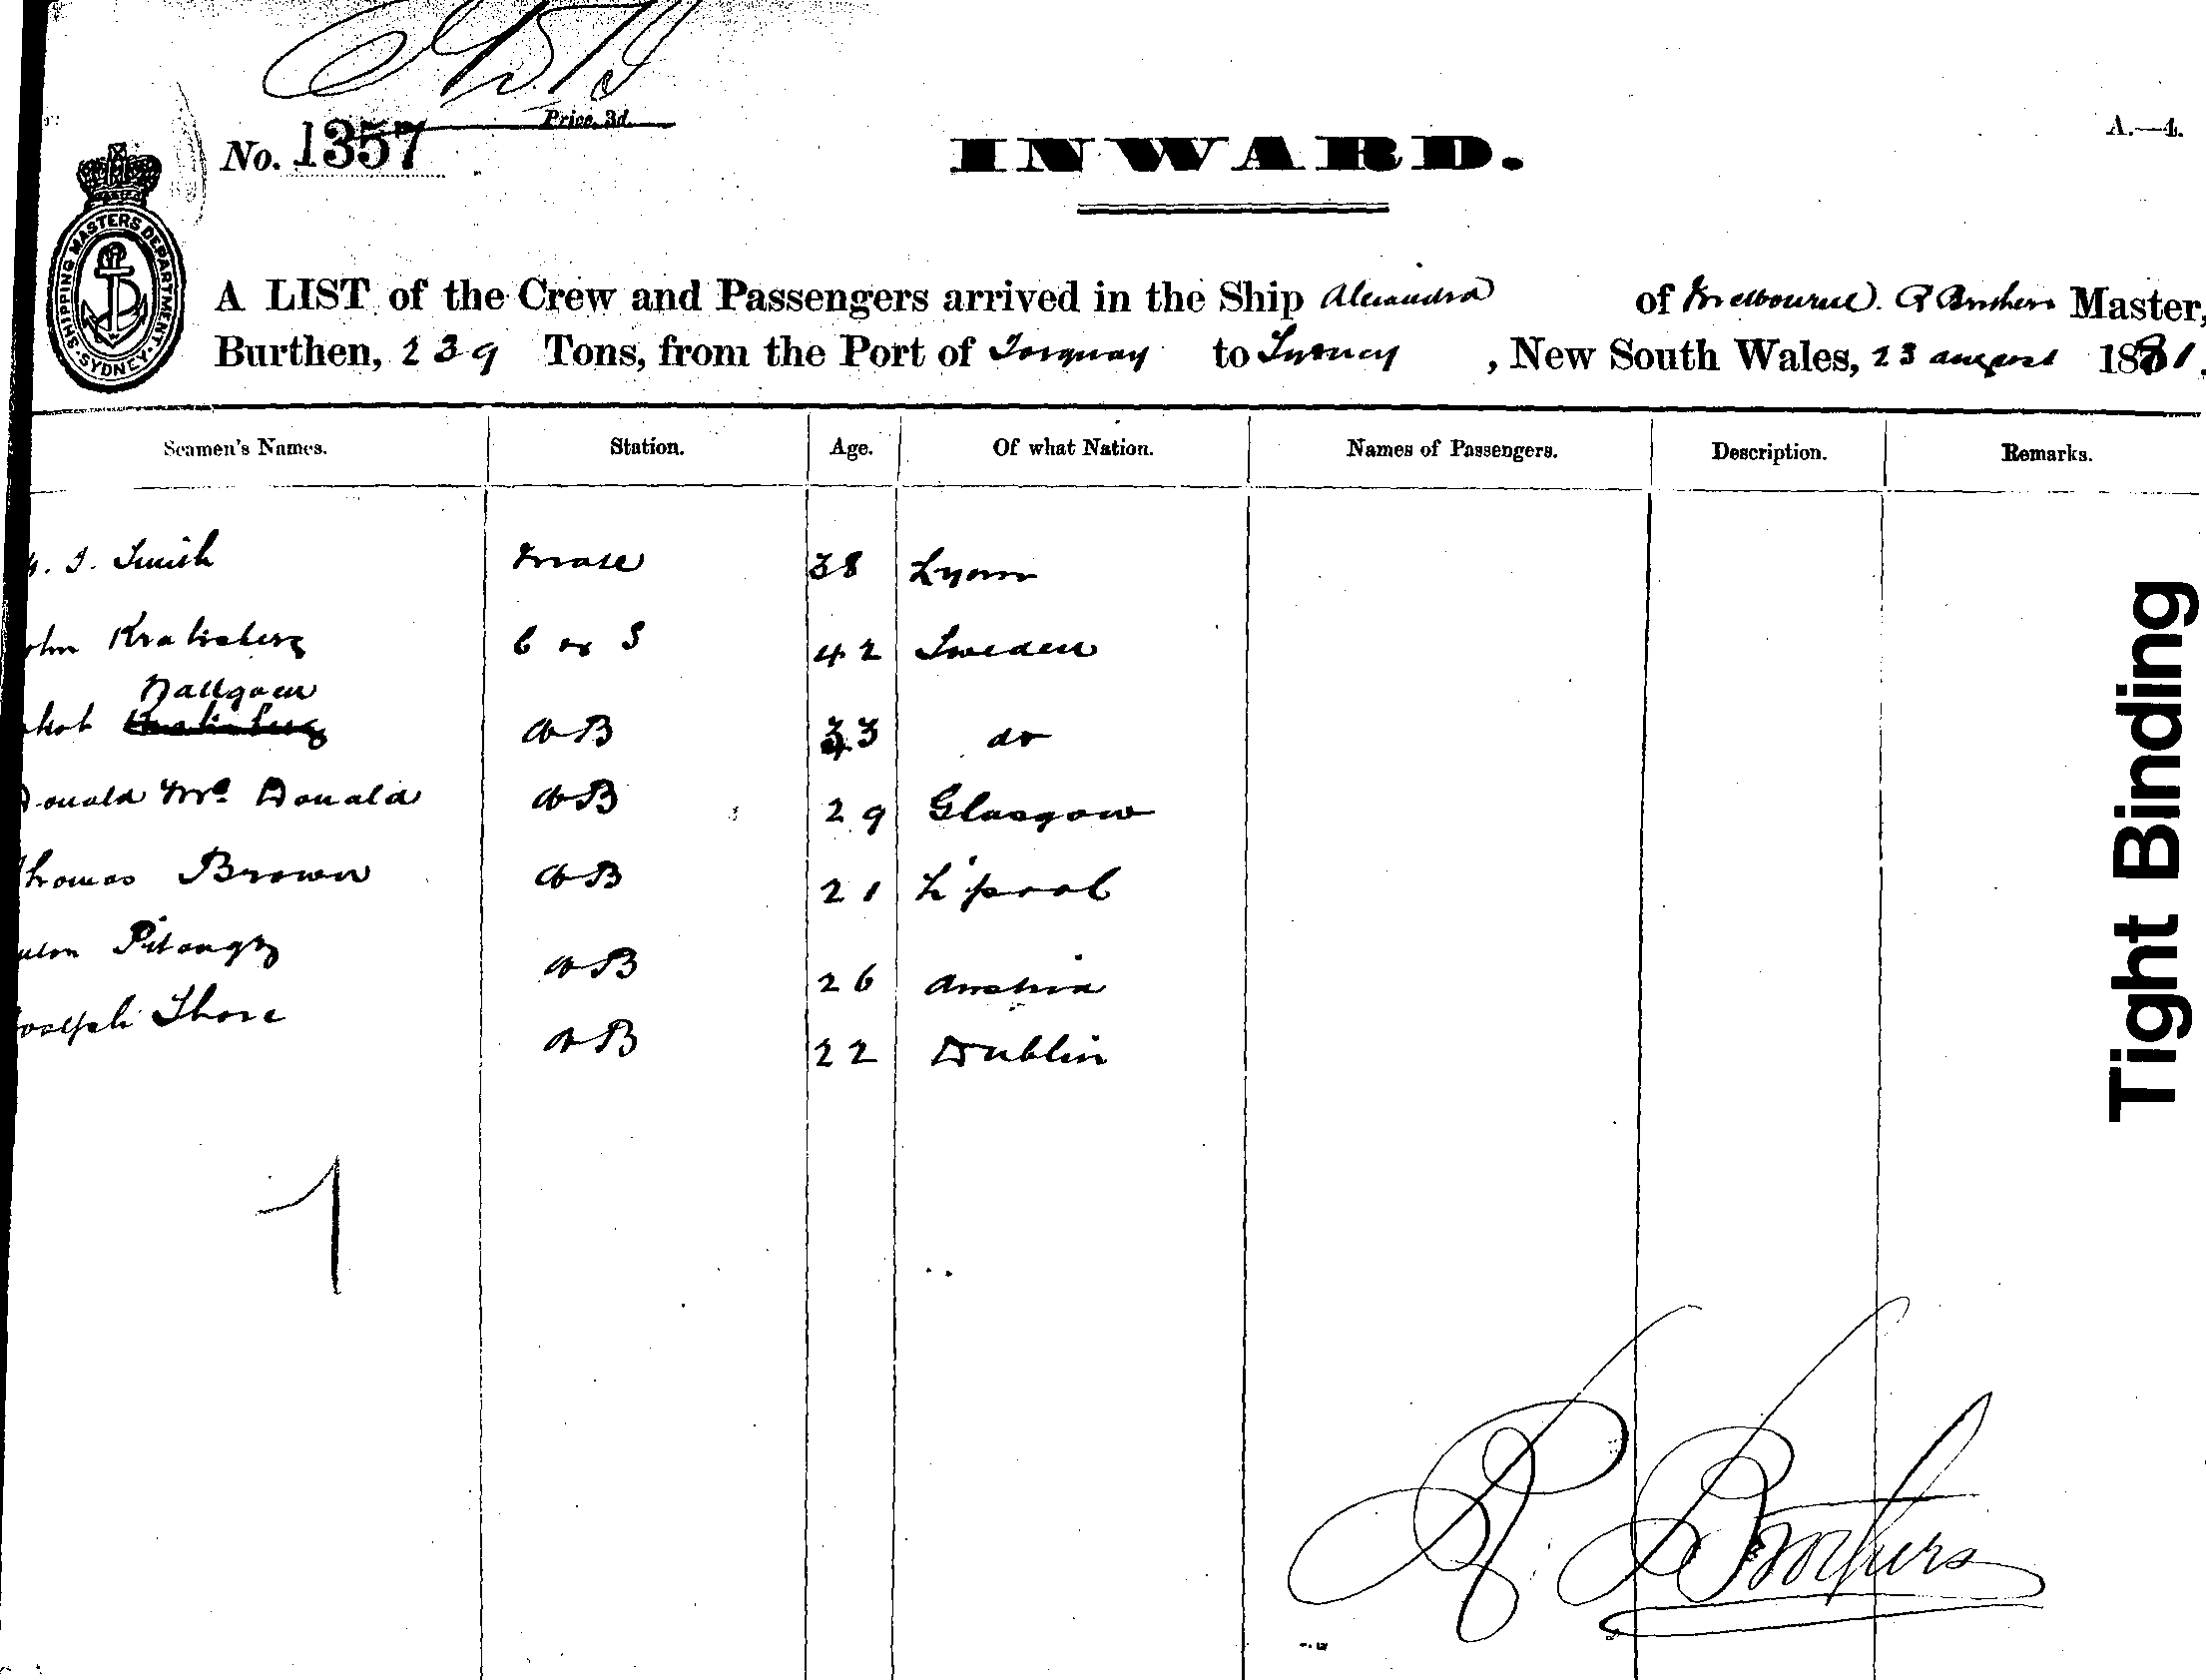 Price, 3d.
No. 1357
INWARD.
A.—4.
SHIPPING MASTERS DEPARTMENT. SYDNEY.
A LIST of the Crew and Passengers arrived in the Ship Alexandra of Melbourne. R Brothers Master,
Burthen, 239 Tons, from the Port of Torquay to Sydney, New South Wales, 23 august 1881.
Seamen's Names. Station. Age. Of what Nation. Names of Passengers. Description. Remarks.
J. Smith Mate 38 Lynn
ohn C & S 42 Sweden
akob AB 33 do
Donald McDonald AB 29 Glasgow
Thomas Brown AB 21 L'pool
AB 26 Austria
Joseph Shore AB 22 Dublin
1
R. Brothers
Tight Binding